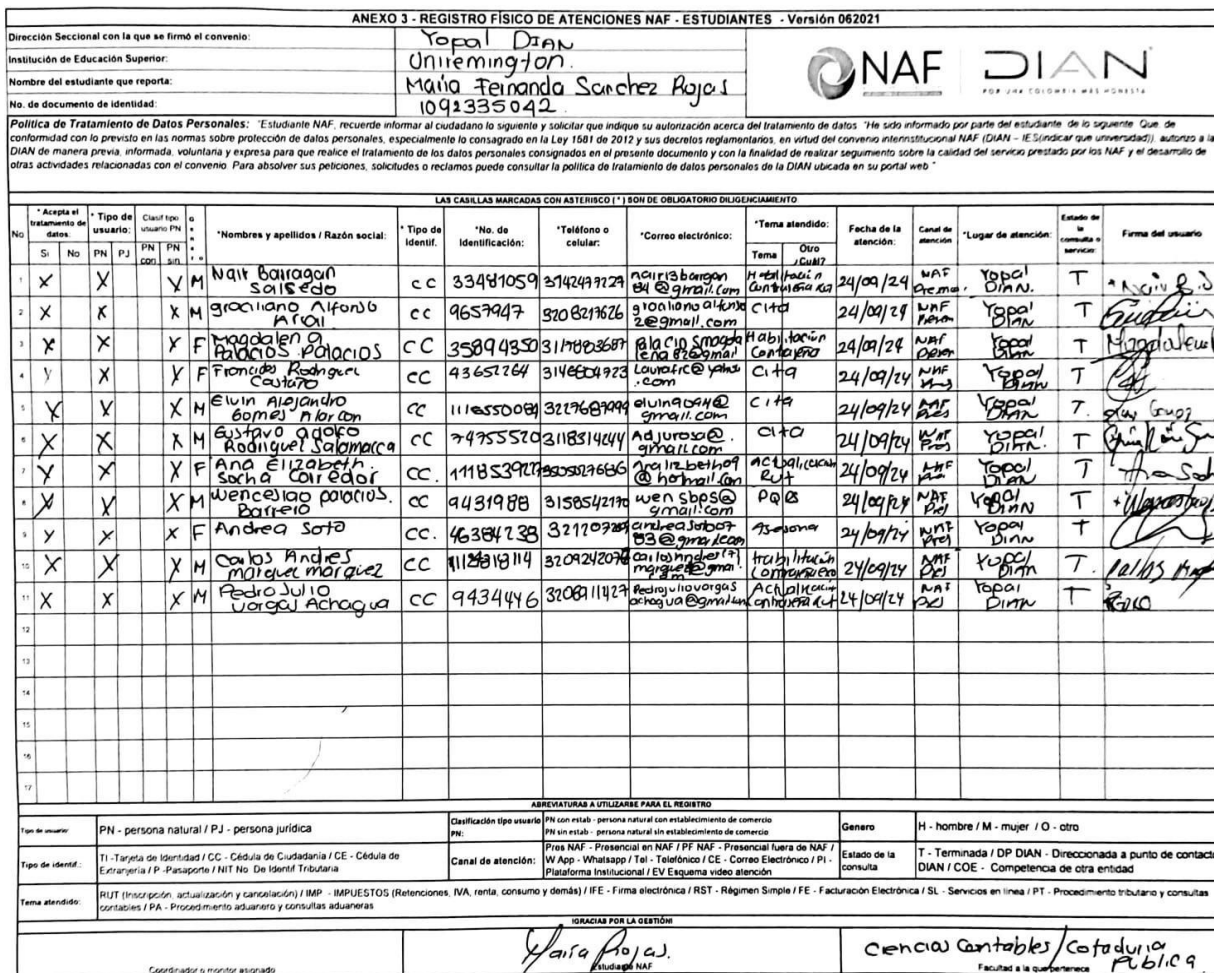 ANEXO 3 - REGISTRO FÍSICO DE ATENCIONES NAF - ESTUDIANTES - Versión 062021
Dirección Seccional con la que se firmó el convenio: Yopal DIAN
Institución de Educación Superior: Uniremington.
Nombre del estudiante que reporta: Maria Fernanda Sanchez Rojas
No. de documento de identidad: 1092335042
NAF DIAN
POR UNA COLOMBIA MÁS HONESTA
Política de Tratamiento de Datos Personales: "Estudiante NAF, recuerde informar al ciudadano lo siguiente y solicitar que indique su autorización acerca del tratamiento de datos "He sido informado por parte del estudiante de lo siguiente Que de
conformidad con lo previsto en las normas sobre protección de datos personales, especialmente lo consagrado en la Ley 1581 de 2012 y sus decretos reglamentarios, en virtud del convenio interinstitucional NAF (DIAN – IES(indicar que universidad)), autorizo a la
DIAN de manera previa, informada, voluntaria y expresa para que realice el tratamiento de los datos personales consignados en el presente documento y con la finalidad de realizar seguimiento sobre la calidad del servicio prestado por los NAF y el desarrollo de
otras actividades relacionadas con el convenio Para absolver sus peticiones, solicitudes o reclamos puede consultar la política de tratamiento de datos personales de la DIAN ubicada en su portal web"
LAS CASILLAS MARCADAS CON ASTERISCO (*) SON DE OBLIGATORIO DILIGENCIAMIENTO
No * Acepta el tratamiento de datos: Si No * Tipo de usuario: PN PJ Clasif tipo usuario PN PN con PN sin *Nombres y apellidos / Razón social: * Tipo de identif. *No. de Identificación: *Teléfono o celular: *Correo electrónico: *Tema atendido: Tema Otro ¿Cuál? Fecha de la atención: Canal de atención *Lugar de atención: Estado de la consulta o servicio: Firma del usuario
1 X X X M Nair Barragan Salsedo CC 33481059 3142477227 Habilitación 24/09/24 NAF Yopal DIAN. T
2 X X X M graciliano Alfonso CC 9657947 3208217626 cita 24/09/24 NAF Yopal DIAN T
3 X X X F Magdalena Palacios Palacios CC 35894350 3117883687 Habilitación 24/09/24 NAF Yopal DIAN T
4 X X X F Rodriguez Castaño CC 43652264 3146804723 cita 24/09/24 NAF Yopal DIAN T
5 X X X M Elvin Alejandro Gomes Alarcon CC 1116550084 3227687999 elvin9094@gmail.com cita 24/09/24 NAF Yopal DIAN T.
6 X X X M Gustavo adolfo Rodriguez Salamanca CC 74755520 3118314244 Adjurosa@.gmail.com cita 24/09/24 NAF Pres Yopal DIAN. T
7 X X X F Ana Elizabeth. Socha Corredor CC. @hotmail.com Rut 24/09/24 NAF Yopal DIAN T
8 X X X M Wenceslao palacios. Barreto CC 9431988 3158542170 wensbps@gmail.com PQ 24/09/24 NAF Pres Yopal DIAN T
9 X X X F Andrea Soto CC. 46384238 Asesoria 24/09/24 NAF Pres Yopal DIAN T
10 X X X M Carlos Andres marquez marquez CC 3209242078 24/09/24 NAF Pres Yopal DIAN T.
11 X X X M Pedro Julio Vargas Achagua CC 9434446 3208911427 Pedrojuliovargas Rut 24/09/24 NAF Yopal DIAN T
12
13
14
15
16
17
ABREVIATURAS A UTILIZARSE PARA EL REGISTRO
Tipo de usuario: PN - persona natural / PJ - persona jurídica
Clasificación tipo usuario PN: PN con estab - persona natural con establecimiento de comercio
PN sin estab - persona natural sin establecimiento de comercio
Genero H - hombre / M - mujer / O - otro
Tipo de identif.: TI -Tarjeta de Identidad / CC - Cédula de Ciudadanía / CE - Cédula de
Extranjería / P -Pasaporte / NIT No. De Identif Tributaria
Canal de atención: Pres NAF - Presencial en NAF / PF NAF - Presencial fuera de NAF /
W App - Whatsapp / Tel - Telefónico / CE - Correo Electrónico / PI -
Plataforma Institucional / EV Esquema video atención
Estado de la consulta T - Terminada / DP DIAN - Direccionada a punto de contacto
DIAN / COE - Competencia de otra entidad
Tema atendido: RUT (Inscripción, actualización y cancelación) / IMP - IMPUESTOS (Retenciones, IVA, renta, consumo y demás) / IFE - Firma electrónica / RST - Régimen Simple / FE - Facturación Electrónica / SL - Servicios en línea / PT - Procedimiento tributario y consultas
contables / PA - Procedimiento aduanero y consultas aduaneras
¡GRACIAS POR LA GESTIÓN!
Maria Rojas. Ciencias Contables / Contaduria Pública
Coordinador o monitor asignado Estudiante NAF Facultad a la que pertenece